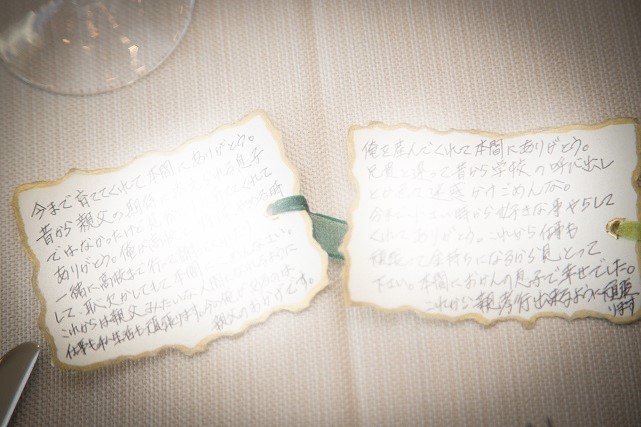 今まで育ててくれて本間にありがとう。
昔から親父の期待に れる息子
ではなかったけど くれて
ありがとう。俺が の
一緒に高校まで行って
して、恥かかしてもて本間に
これからは親父みたいな人間に ように
仕事も私生活も頑張ります。今の俺があるのは
親父のおかげです。
俺を産んでくれて本間にありがとう。
兄貴と違って昔から学校の呼び出し
とか 迷惑かけごめんな。
今まで小さい時から好きな事やらして
くれてありがとう。これから仕事も
頑張って金持ちになるから見とって
下さい。本間におかんの息子で幸せでした。
これから親孝行出来るように頑張
ります